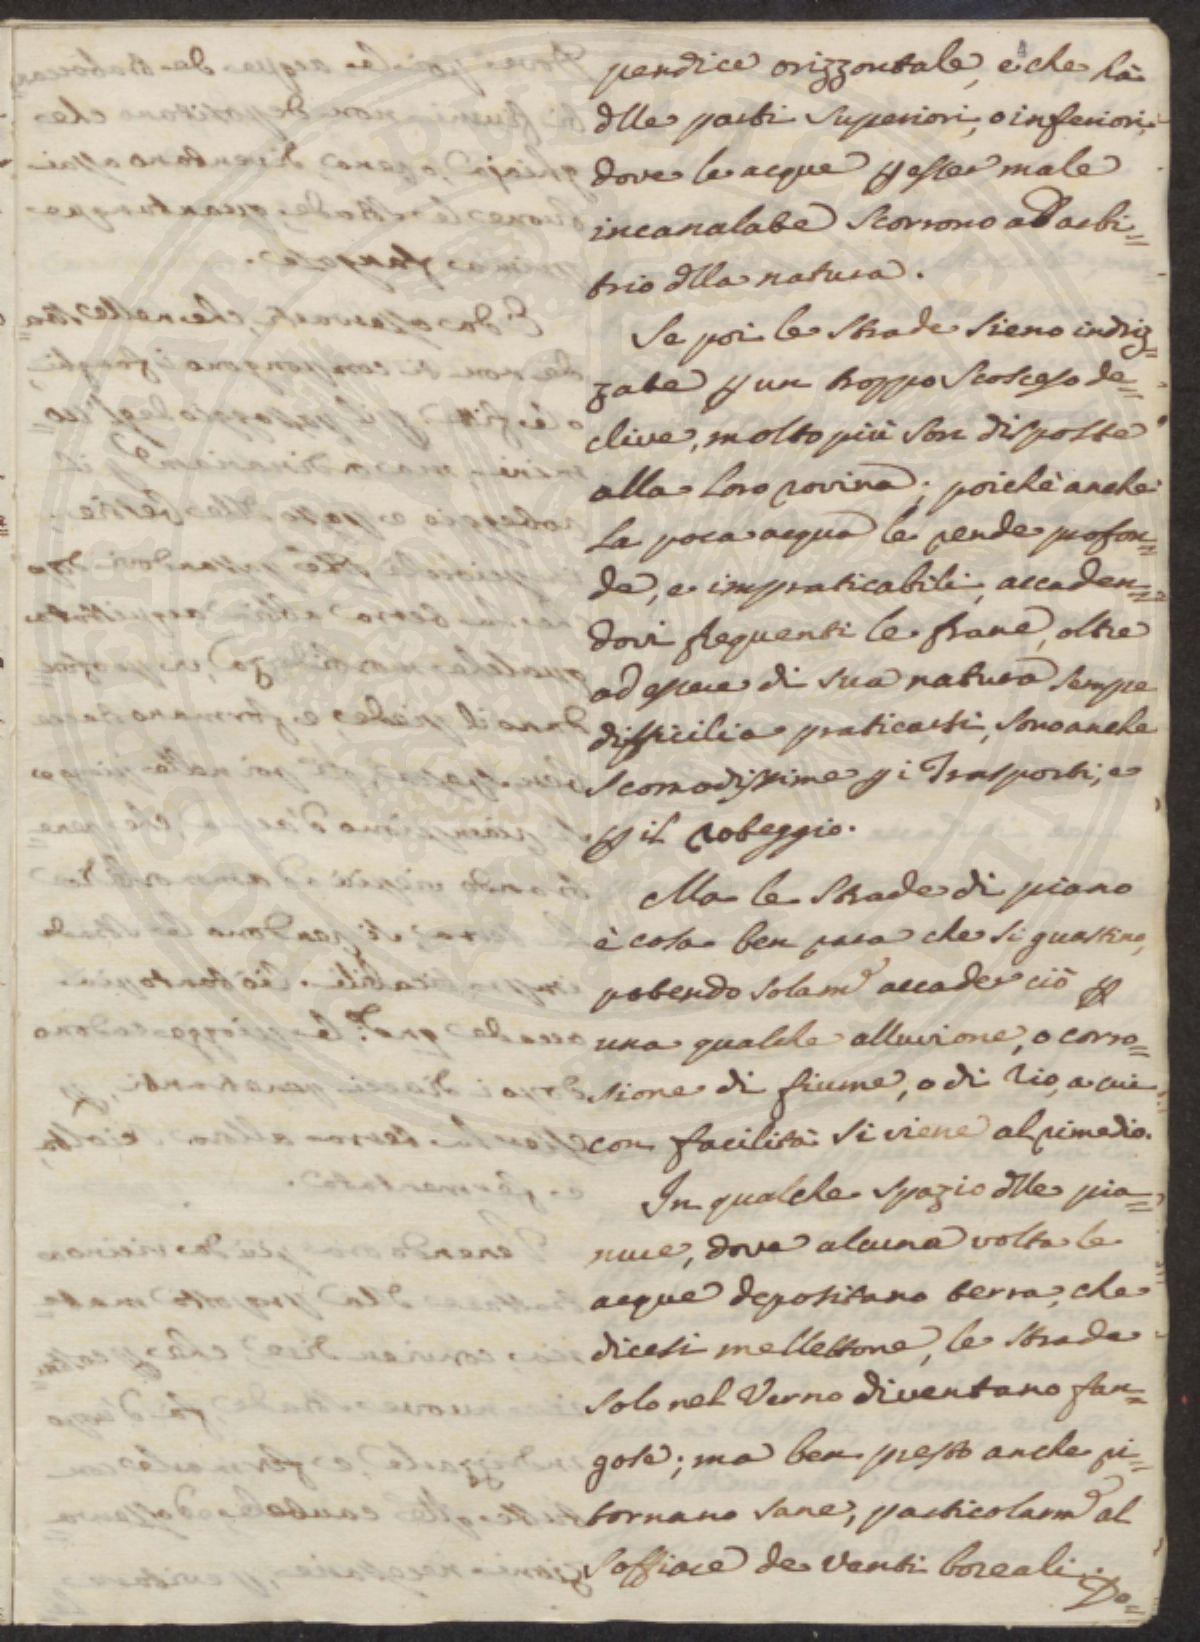 pendice orizzontale, e che hà
dlle parti superiori, o inferiori,
dove le acque p esser male
incanalate scorrono ad arbi=
trio dlla natura.
Se poi le strade sieno indriz=
zate p un troppo scosceso de=
clive, molto più son disposte
alla loro rovina; poichè anche
la poca acqua le rende profon=
de, e impraticabili, accaden=
dovi frequenti le frane, oltre
ad essere di sua natura sempre
difficili a praticarsi, sono anche
scomodissime p i Trasporti, e
p il robeggio.
Ma le strade di piano
è cosa ben rara che si guastino,
potendo solam.e accader ciò p
una qualche alluvione, o corro=
sione di fiume, o di rio, a cui
con facilità si viene al rimedio.
In qualche spazio dlle pia=
nure, dove alcuna volta le
acque depositano terra, che
dicesi mellettone, le strade
solo nel Verno diventano fan=
gose; ma ben presto anche ri=
tornano sane, particolarm.e al
soffiare de venti boreali.
Do=